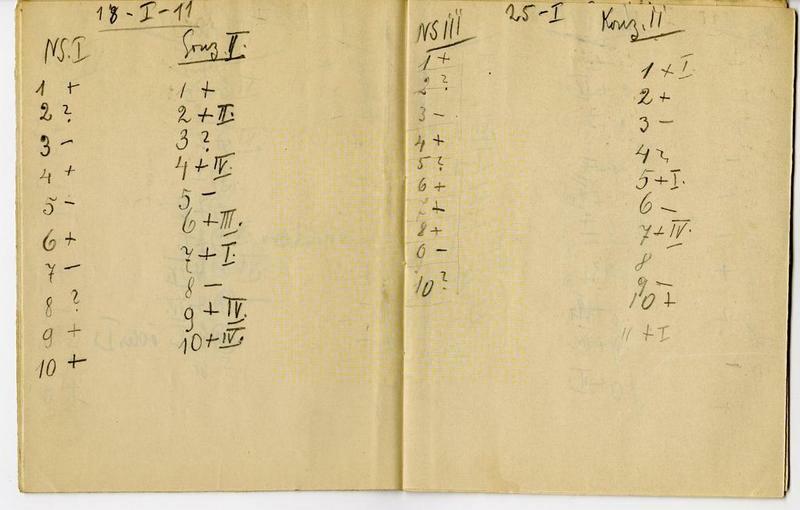 18-I-11
NS. I
1 +
2 ?
3 -
4 +
5 -
6 +
7 -
8 ?
9 +
10 +
Gonz. II.
1 +
2 + II.
3 ?
4 + IV.
5 -
6 + III.
7 + I.
8 -
9 + IV.
10 + IV.
25-I
NS III
1 +
2 ?
3 -
4 +
5 ?
6 +
+
8 +
-
10 ?
Konz. II
1 + I.
2 +
3 -
4 ?
5 + I.
6 -
7 + IV.
8
9 -
10 +
11 + I